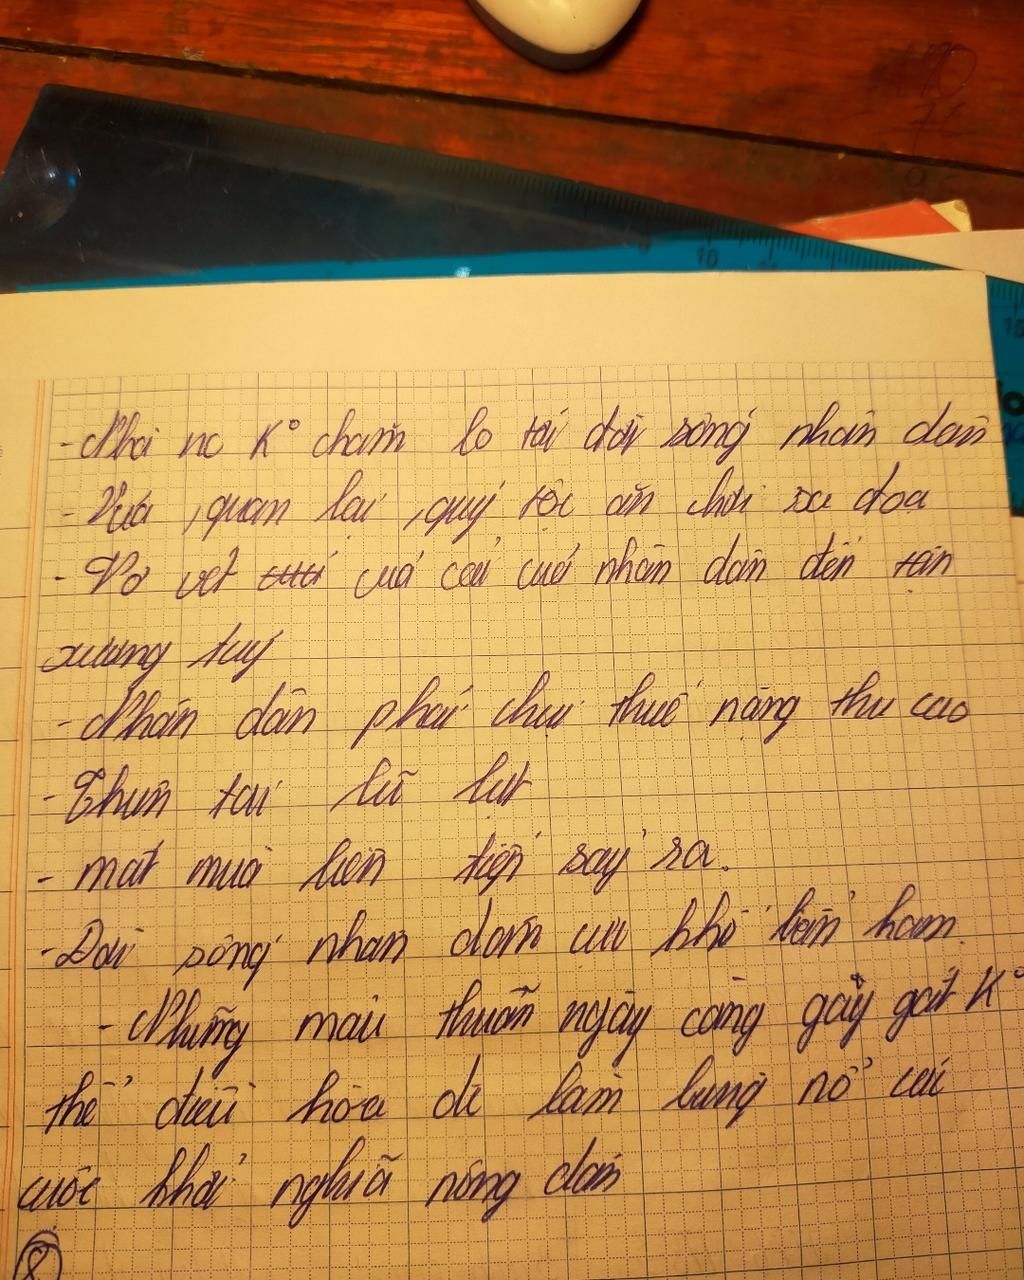 - Nhà nc K° chăm lo tới đời sống nhân dân
- Vua, quan lại, quý tộc ăn chơi sa đoạ
- Vơ vét của cải của nhân dân đến tận
xương tuý
- Nhân dân phải chịu thuế nặng thu cao
- Thiên tai lũ lụt
- mất mùa liên tiếp sảy ra.
- Đời sống nhân dân cực khổ bần hàn.
- Những mâu thuẫn ngày càng gay gắt K°
thể điều hòa đc làm bùng nổ các
cuộc khởi nghĩa nông dân
8
10